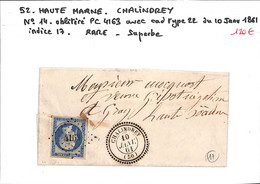 52. HAUTE MARNE. CHALINDREY
N°. 14. oblitéré PC 4163 avec cad type 22 du 10 Janv 1861
indice 17. RARE - Superbe
120 €
Monsieur
et
a Gray
haute Saône
CHALINDREY
10
JANV.
61
(50)